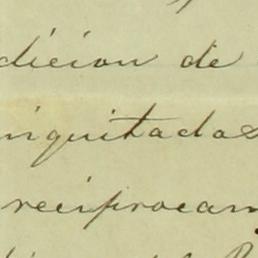 dicion de
inquitados
reciprocam